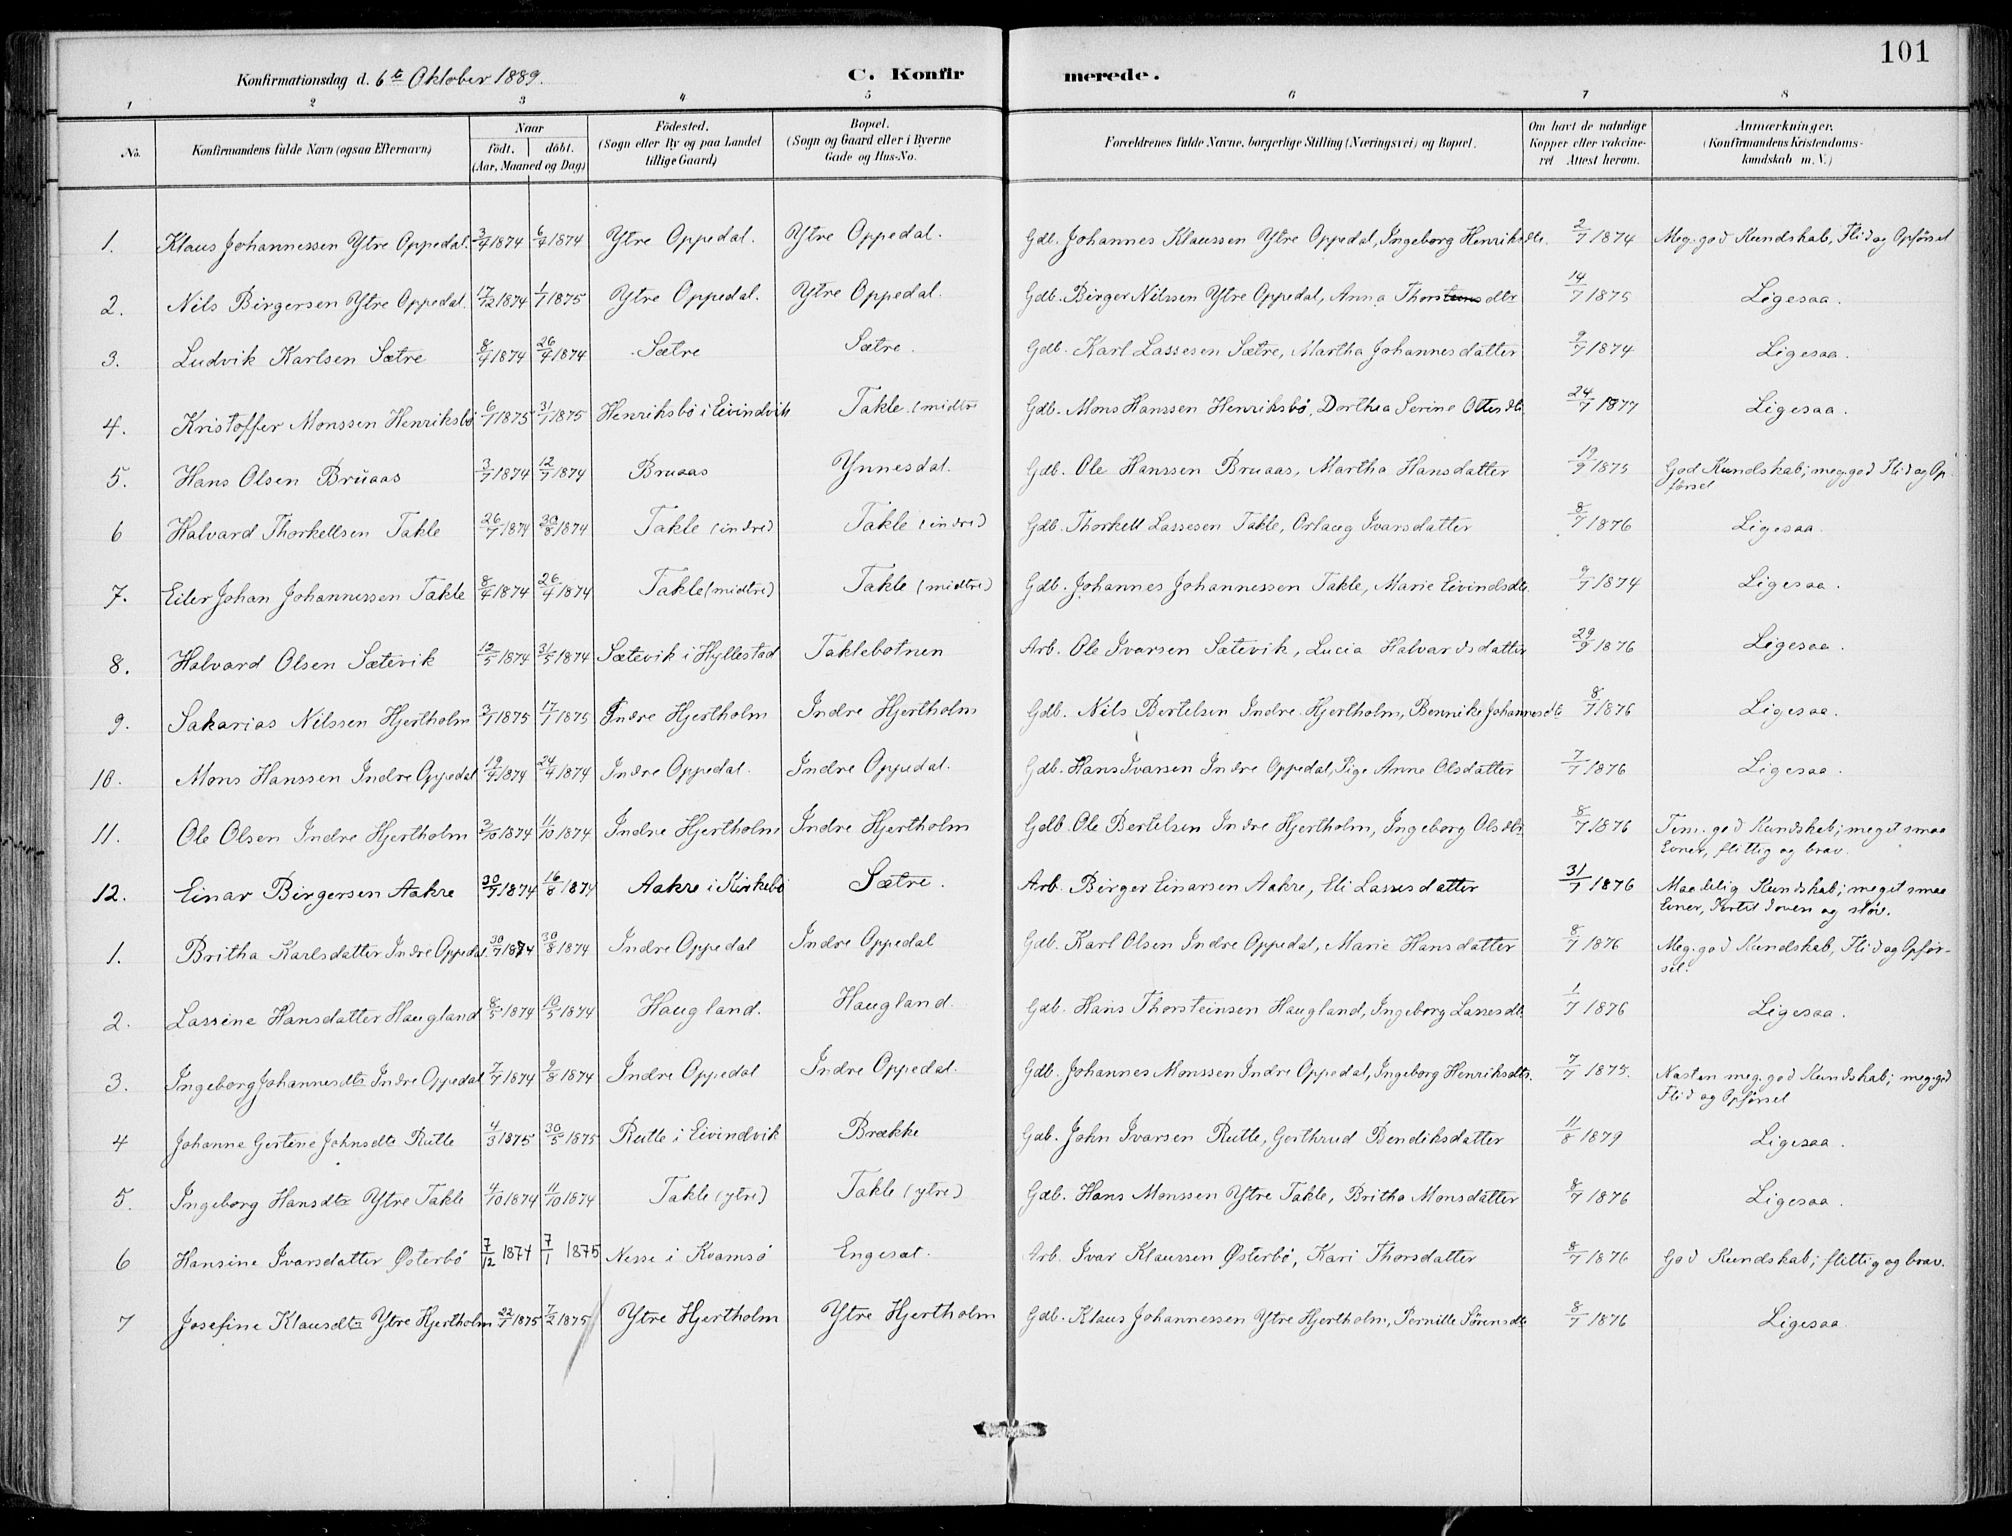 101
Konfirmationsdag d. 6te Oktober 1889.
C. Konfirmerede.
1 2 3 4 5 6 7 8
No. Konfirmandens fulde Navn (ogsaa Efternavn) Naar født. døbt. (Aar, Maaned og Dag) Fødested. (Sogn eller By og paa Landet tillige Gaard) Bopæl. (Sogn og Gaard eller i Byerne Gade og Hus-No. Forældrenes fulde Navne, borgerlige Stilling (Næringsvei) og Bopæl. Om havt de naturlige Kopper eller vakcineret Attest herom. Anmærkninger. (Konfirmandens Kristendomskundskab m. V.)
1. Klaus Johannessen Ytre Oppedal. 3/7 1874 6/7 1874 Ytre Oppedal. Ytre Oppedal. Gdb. Johannes Klaussen Ytre Oppedal, Ingeborg Henriksdtr. 2/7 1874 Meg. god Kundskab, Flid og Opførsel
2. Nils Birgersen Ytre Oppedal. 17/12 1874 1/1 1875 Ytre Oppedal. Ytre Oppedal. Gdb. Birger Nilssen Ytre Oppedal, Anna Thorsteinsdtr 14/7 1875 Ligesaa.
3. Ludvik Karlsen Sætre 8/4 1874 26/4 1874 Sætre Sætre. Gdb. Karl Lassesen Sætre, Martha Johannesdatter 9/7 1874 Ligesaa.
4. Kristoffer Monssen Henriksbø 6/1 1875 31/1 1875 Henriksbø i Eivindvik Takle (midtre Gdb. Mons Hanssen Henriksbø, Dorthea Serine Ottesdtr. 24/7 1877 Ligesaa.
5. Hans Olsen Bruaas 3/7 1874 12/7 1874 Bruaas Ynnesdal. Gdb. Ole Hanssen Bruaas, Martha Hansdatter 19/9 1875 God Kundskab; meg. god Flid og Opførsel
6 Halvard Thorkellsen Takle 26/7 1874 30/8 1874 Takle (indre) Takle (indre) Gdb. Thorkell Lassesen Takle, Orlaug Ivarsdatter 8/7 1876 Ligesaa.
7. Eiler Johan Johannessen Takle 8/4 1874 26/4 1874 Takle (midtre) Takle (midtre) Gdb. Johannes Johannessen Takle, Marie Eivindsdtr. 9/7 1874 Ligesaa.
8. Halvard Olsen Sætevik 13/5 1874 31/5 1874 Sætevik i Hyllestad Taklebotnen Arb. Ole Ivarsen Sætevik, Lucia Halvardsdatter 29/9 1876 Ligesaa.
9. Sakarias Nilssen Hjertholm 3/1 1875 17/1 1875 Indre Hjertholm Indre Hjertholm Gdb. Nils Bertelsen Indre Hjertholm, Bennike Johannesdtr 8/7 1876 Ligesaa.
10. Mons Hanssen Indre Oppedal 19/4 1874 24/4 1874 Indre Oppedal. Indre Oppedal. Gdb. Hans Ivarsen Indre Oppedal, Pige Anne Olsdatter 7/7 1876 Ligesaa.
11. Ole Olsen Indre Hjertholm 3/10 1874 11/10 1874 Indre Hjertholm Indre Hjertholm Gdb. Ole Bertelsen Indre Hjertholm, Ingeborg Olsdtr 8/7 1876 Tem. god Kundskab; meget smaa Evner, flittig og brav.
12. Einar Birgersen Aakre 30/7 1874 16/8 1874 Aakre i Kirkebø Sætre. Arb. Birger Einarsen Aakre, Eli Lassesdatter 31/7 1876 Maadelig Kundskab; meget smaa Evner, doven og sløv.
1. Britha Karlsdatter Indre Oppedal 30/7 1874 30/8 1874 Indre Oppedal Indre Oppedal Gdb. Karl Olsen Indre Oppedal, Marie Hansdatter 8/7 1876 Meg. god Kundskab, Flid og Opførsel.
2. Lassine Hansdatter Haugland 8/5 1874 10/5 1874 Haugland. Haugland. Gdb. Hans Thorsteinsen Haugland, Ingeborg Lassesdtr. 1/7 1876 Ligesaa.
3. Ingeborg Johannesdtr Indre Oppedal 7/7 1874 9/8 1874 Indre Oppedal Indre Oppedal. Gdb. Johannes Monssen Indre Oppedal, Ingeborg Henriksdtr. 7/7 1875. Næsten meg. god Kundskab; meg. god Flid og Opførsel
4 Johanne Gertine Johnsdtr Rutle 4/3 1875 30/5 1875 Rutle i Eivindvik Brække Gdb. John Ivarsen Rutle, Gerthrud Bendiksdatter 11/8 1879 Ligesaa.
5. Ingeborg Hansdtr Ytre Takle 4/10 1874 11/10 1874 Takle (ytre) Takle (ytre) Gdb. Hans Monssen Ytre Takle, Britha Monsdatter 8/7 1876 Ligesaa.
6 Hansine Ivarsdatter Østerbø 7/12 1874 7/1 1875 Nesse i Kvamsø Engesæt. Arb. Ivar Klaussen Østerbø, Kari Thorsdatter 8/7 1876 God Kundskab; flittig og brav.
7 Josefine Klausdtr Ytre Hjertholm 22/1 1875 7/2 1875 Ytre Hjertholm Ytre Hjertholm Gdb. Klaus Johannessen Ytre Hjertholm, Pernille Sørensdtr 8/7 1876 Ligesaa.